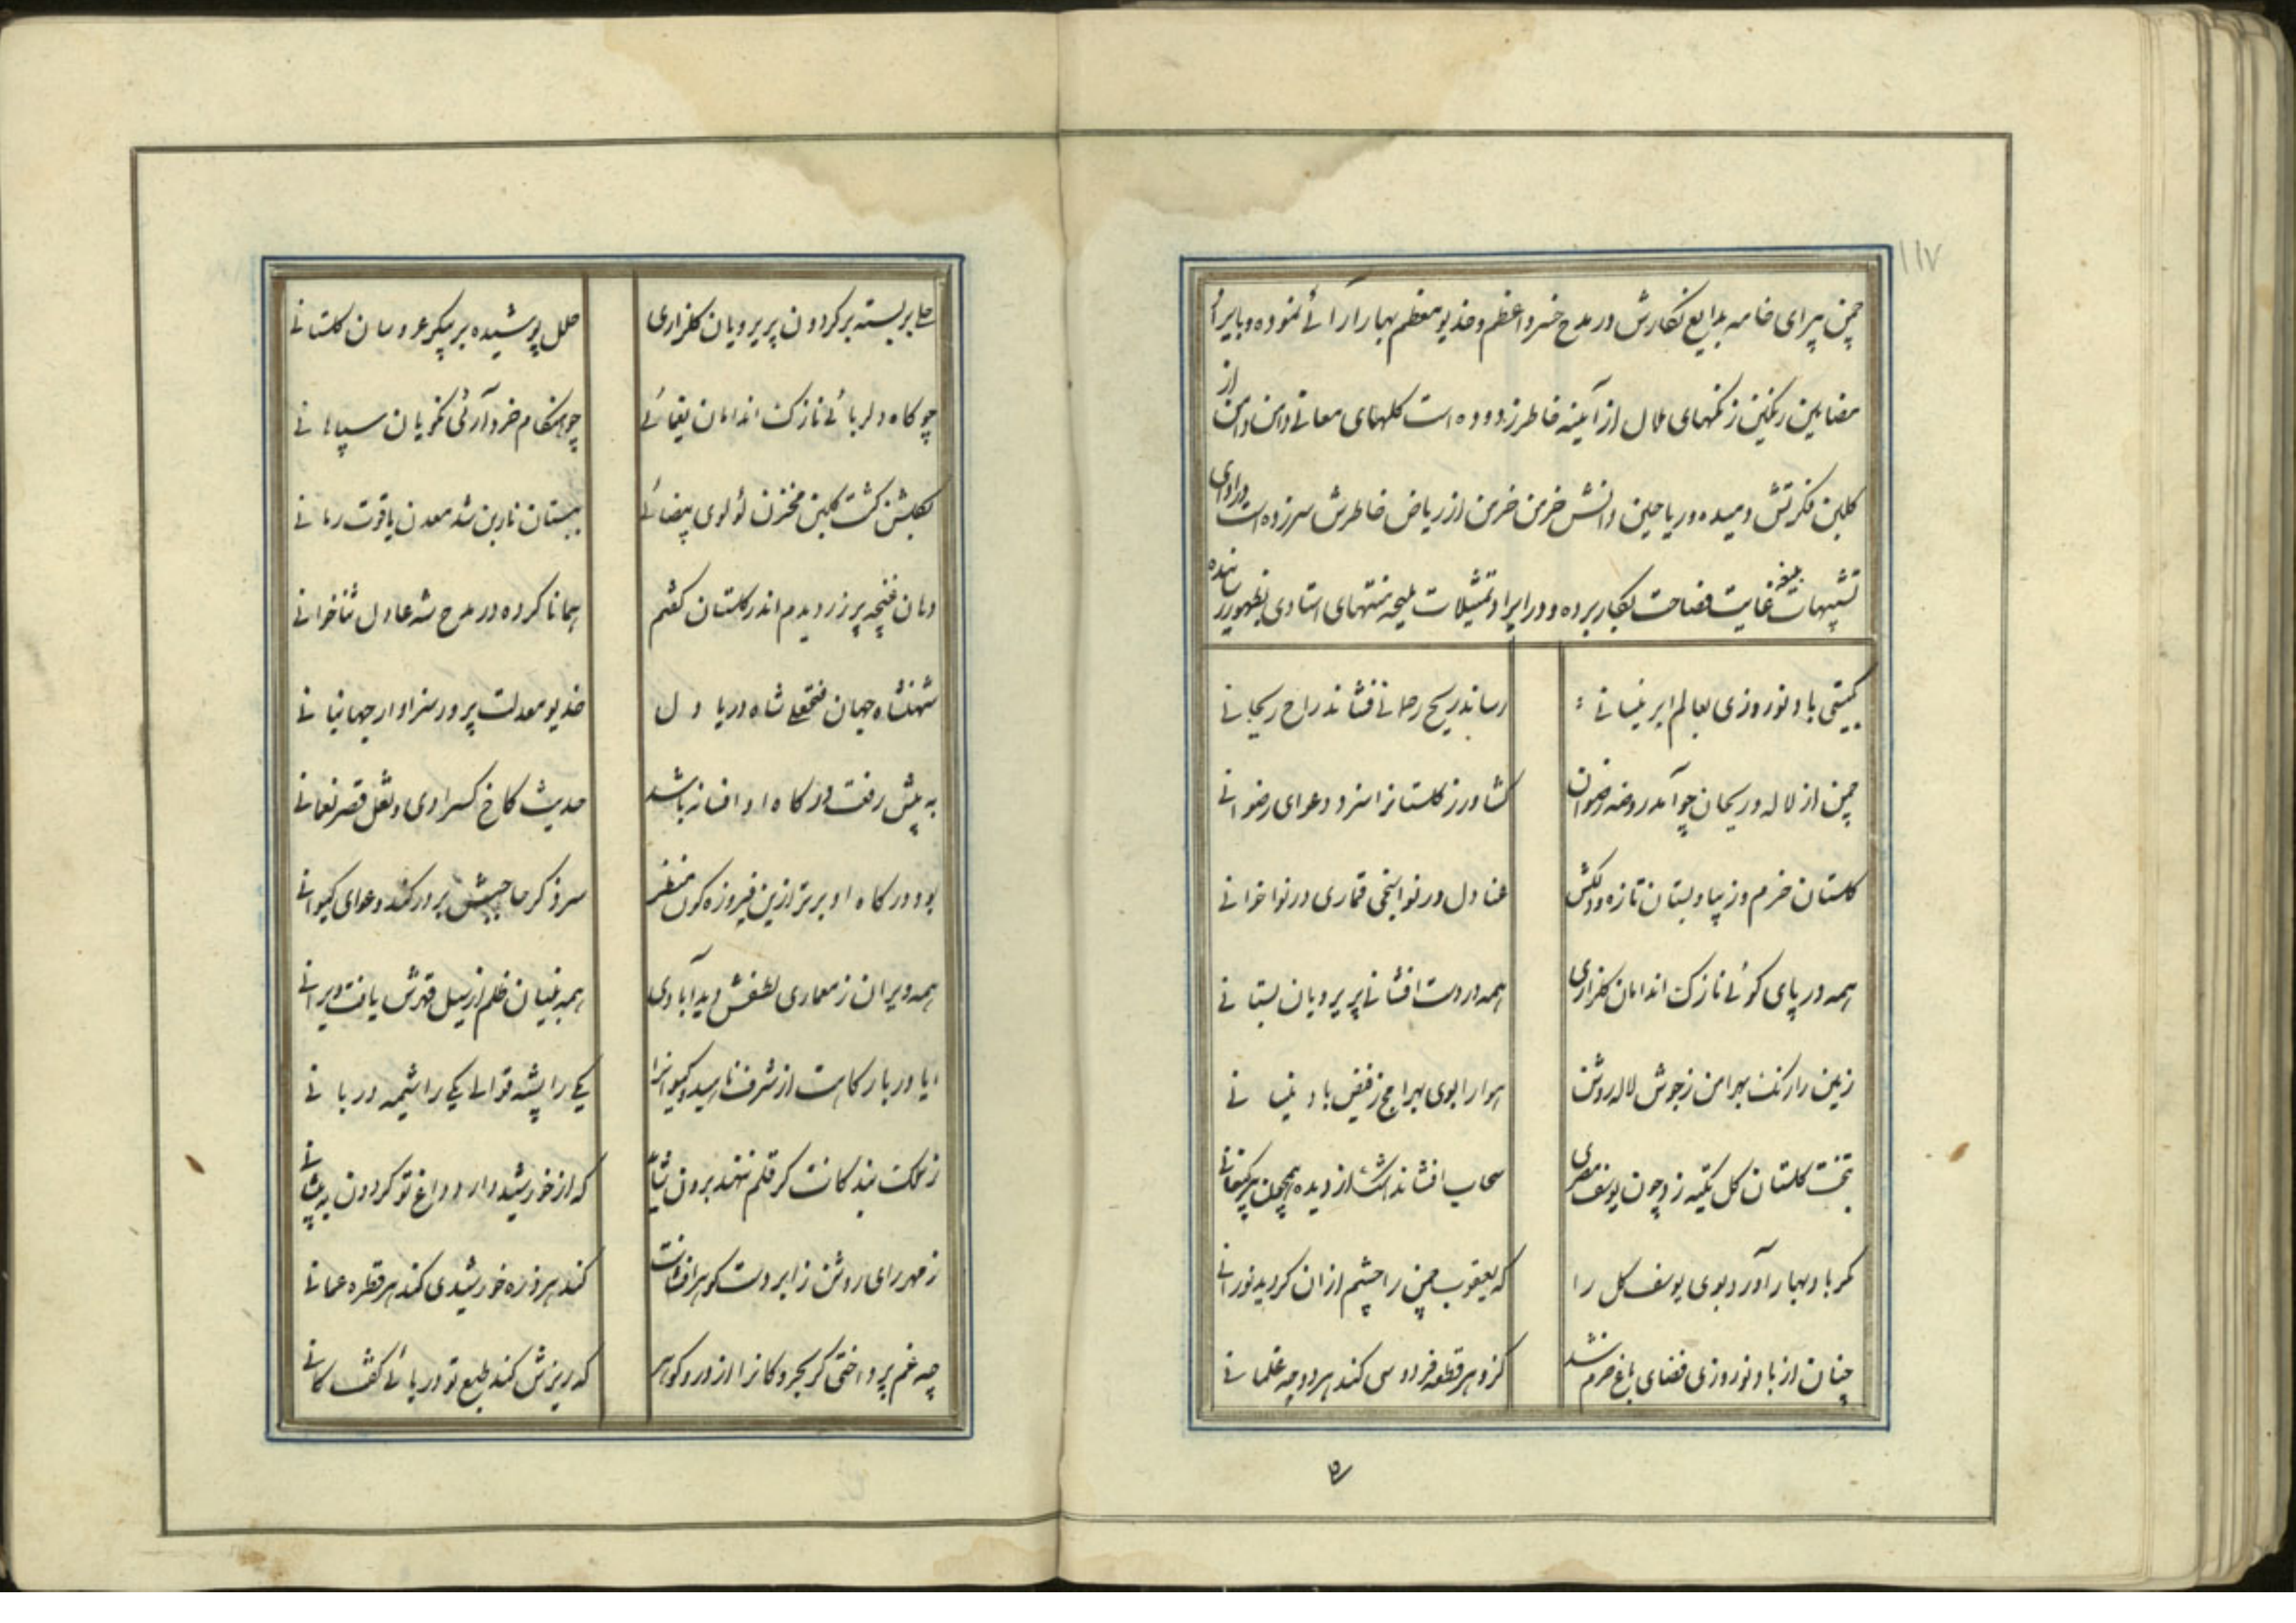 ۱۱۷
چمن پیرای خامه بدایع نکارش در مدح خسرو اعظم و خدیو معظم بهار ارآرائی نموده و بایراد
مضامین رنکین زنکهای ملال از آینه خاطر زدوده است کلهای معانی دامن دامن از
کلبن فکرتش دمیده و ریاحین دانش خرمن خرمن از ریاض خاطرش سرزده است در ادای
تشبیهات بلیغه غایت فصاحت بکار برده و در ایراد تمثیلات ملیحه منتهای استادی بظهور رسانیده
بکیتی باد نوروزی بعالم ابر نیسانی
رساند ریح روحانی فشاند راح ریحانی
چمن از لاله و ریحان چو آمد روضه رضوان
کشاورز کلستانرا سزد دعوای رضوانی
کلستان خرم و زیبا و بستان تازه و دلکش
عنادل در نواسنجی قماری در نواخوانی
همه در پای کوئی نازک اندامان کلزاری
همه در دست افشانی پریرویان بستانی
زمین را رنک بهرامن ز جوش لاله روشن
هوا را بوی بهرامج ز فیض باد نیسانی
بتخت کلستان کل تکیه زد چون یوسف مصری
سحاب افشاند اشک از دیده همچون پیر کنعانی
مکر باد بهار آورد بوی یوسف کل را
که یعقوب چمن را چشم ازان کردید نورانی
چنان از باد نوروزی فضای باغ خرم شد
کزو هر قطعه فردوسی کند هر دوحه غلمانی
حلی بر بسته بر کردون پریرویان کلزاری
حلل پوشیده بر پیکر عروسان کلستانی
چو کاه دلربائی نازک اندامان یغمائی
چو هنکام خودآرائی نکویان سپاهانی
بکلشن کشت کلبن مخزن لؤلوی بیضائی
ببستان نارون شد معدن یاقوت رمانی
دهان غنچه پر زر دیدم اندر کلستان کفتم
همانا کرده در مدح شه عادل ثناخوانی
شهنشاه جهان فتحعلی شاه دریا دل
خدیو معدلت پرور سزاوار جهانبانی
به پیش رفعت درکاه او افسانه باشد
حدیث کاخ کسراوی و نقل قصر نعمانی
بود درکاه او برتر ازین فیروزه کون منظر
سزد کر حاجبش بر در کند دعوای کیوانی
همه ویران ز معماری لطفش دید آبادی
همه بنیان ظلم از سیل قهرش یافت ویرانی
ایا دربارکاهت از شرف ناهید و کیوانرا
یکی را پیشه قوالی یکی را شیمه دربانی
ز سلک بندکانت کر قلم ننهند برون شاها
که از خورشید دارد داغ تو کردون به پیشانی
ز مهر رای روشن ز ابر دست کوهرافشانت
کند هر ذره خورشیدی کند هر قطره عمانی
چه غم پرداختی کر بحر و کانرا از در و کوهر
که ریزش کند طبع تو دریائی کفت کانی